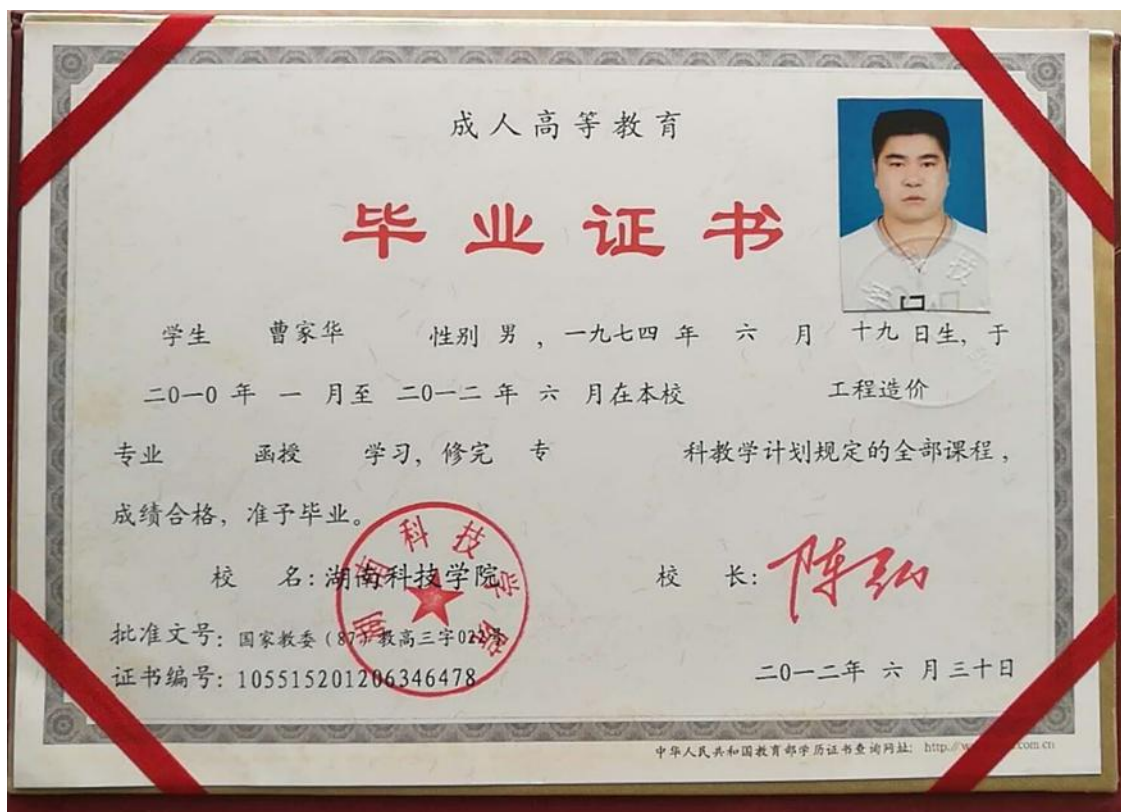 成人高等教育
毕业证书
学生 曹家华 性别 男，一九七四 年 六 月 十九 日生，于
二0一0 年 一 月至 二0一二 年 六 月在本校 工程造价
专业 函授 学习，修完 专 科教学计划规定的全部课程，
成绩合格，准予毕业。
湖南科技学院
校 名：湖南科技学院 校 长：陈弘
批准文号：国家教委（87）教高三字022号
证书编号：105515201206346478 二0一二年 六 月三十日
中华人民共和国教育部学历证书查询网址：http://w
com.cn